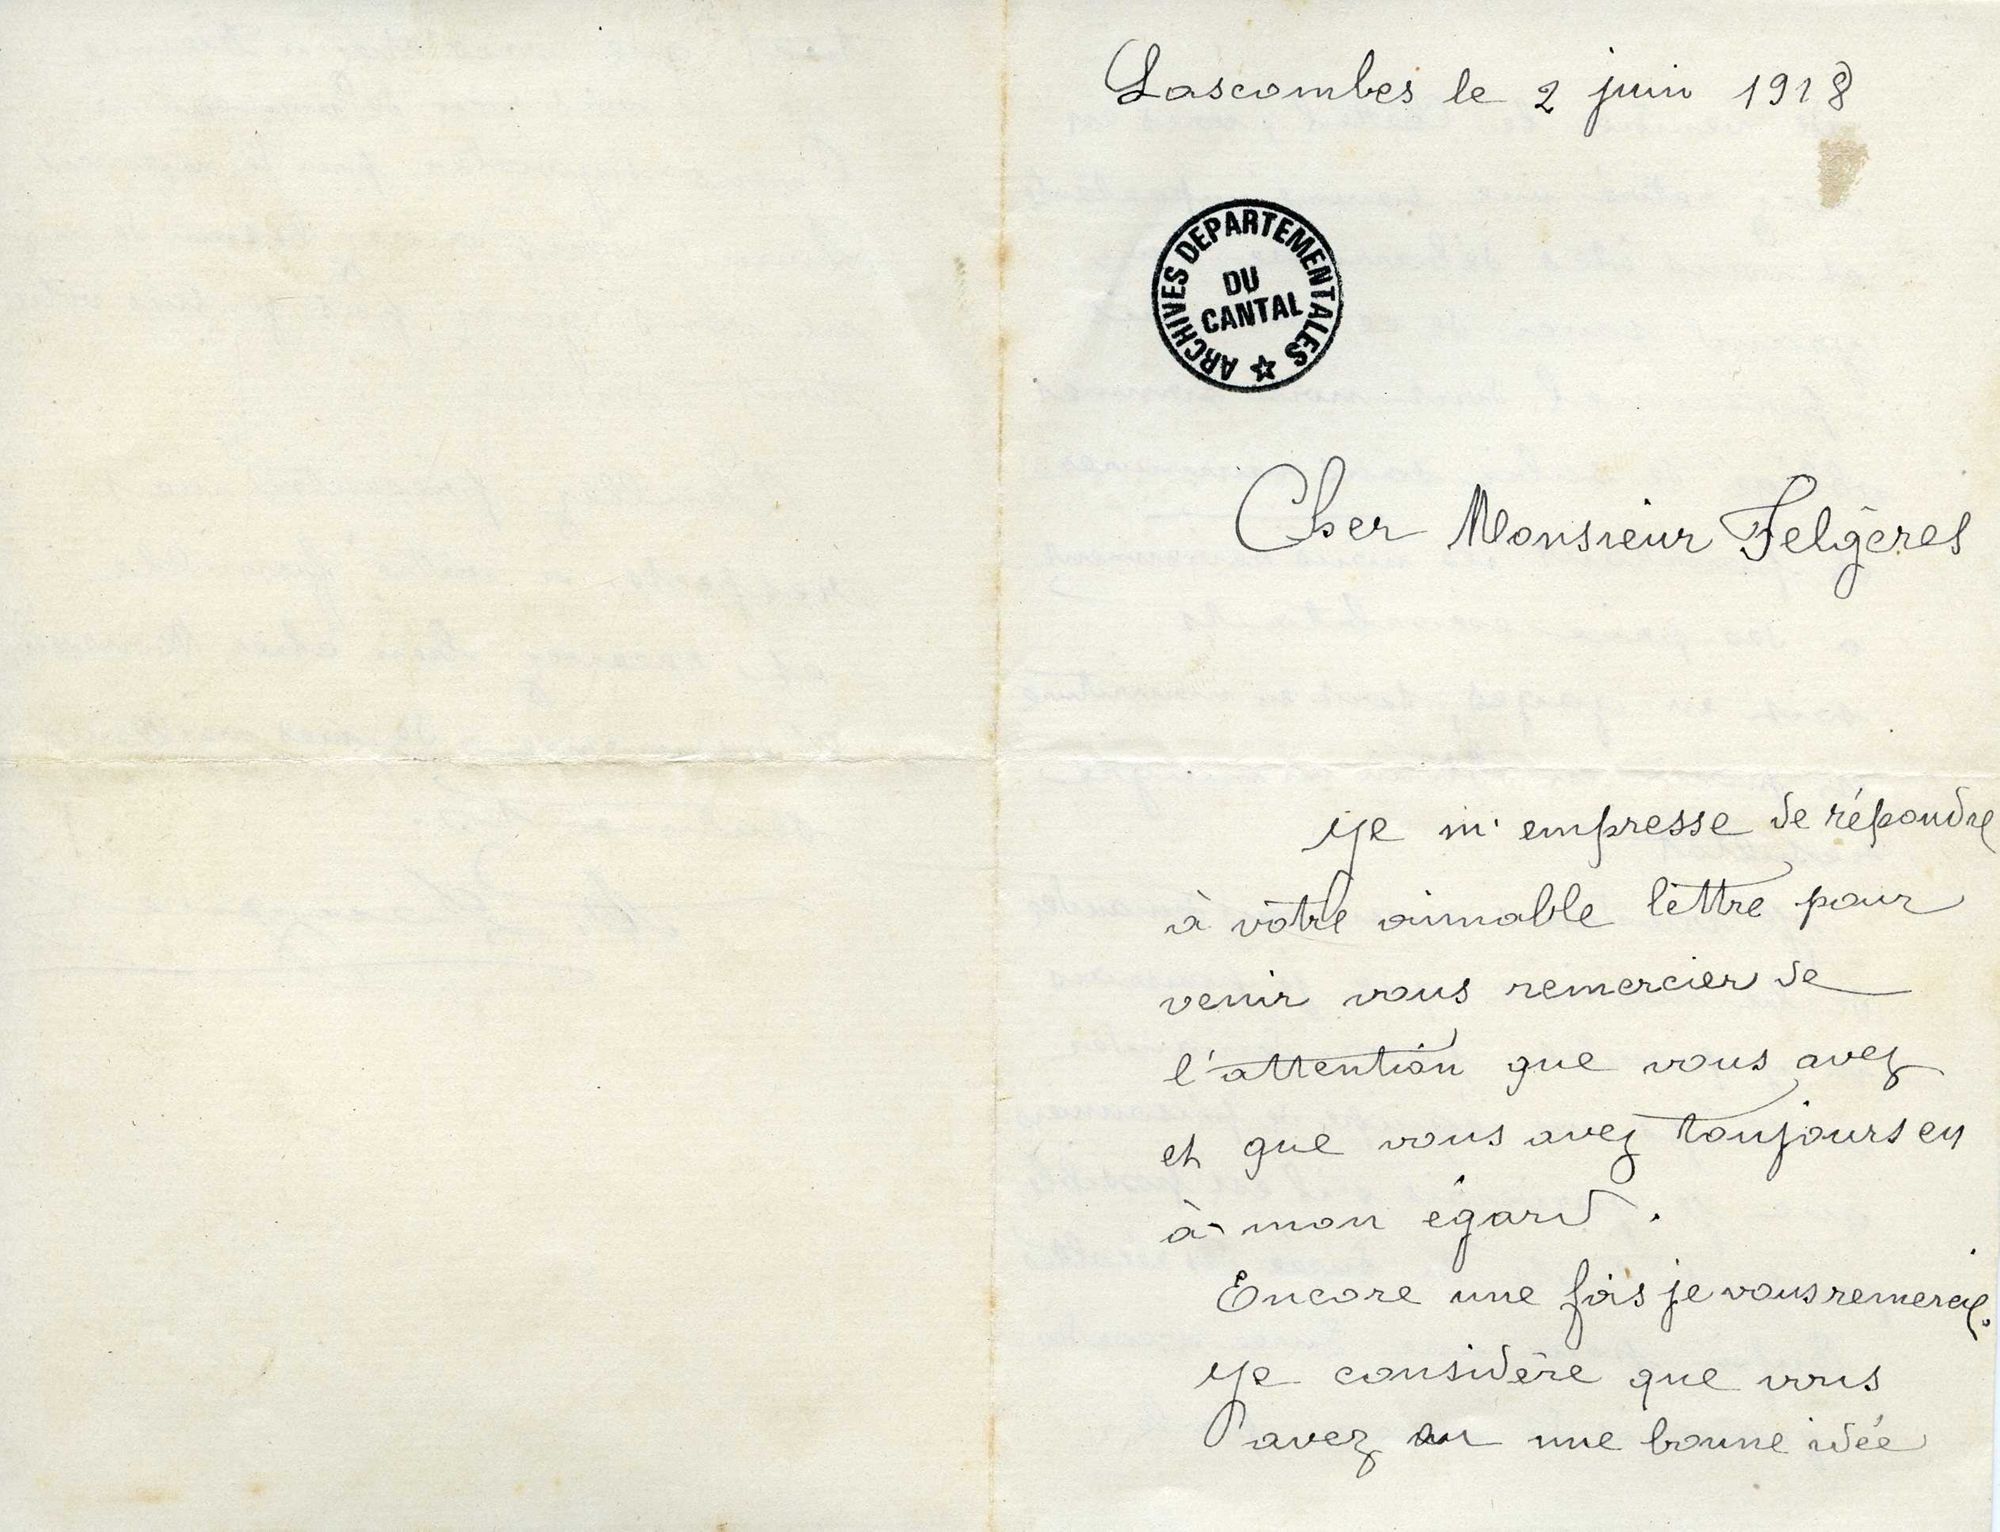 Lascombes le 2 juin 1918
ARCHIVES DEPARTEMENTALES
DU
CANTAL
Cher Monsieur Felgères
Je m'empresse de répondre
à vôtre aimable lettre pour
venir vous remercier de
l'attention que vous avez
et que vous avez toujours eu
à mon égard.
Encore une fois je vous remercie.
Je considère que vous
avez eu une bonne idée